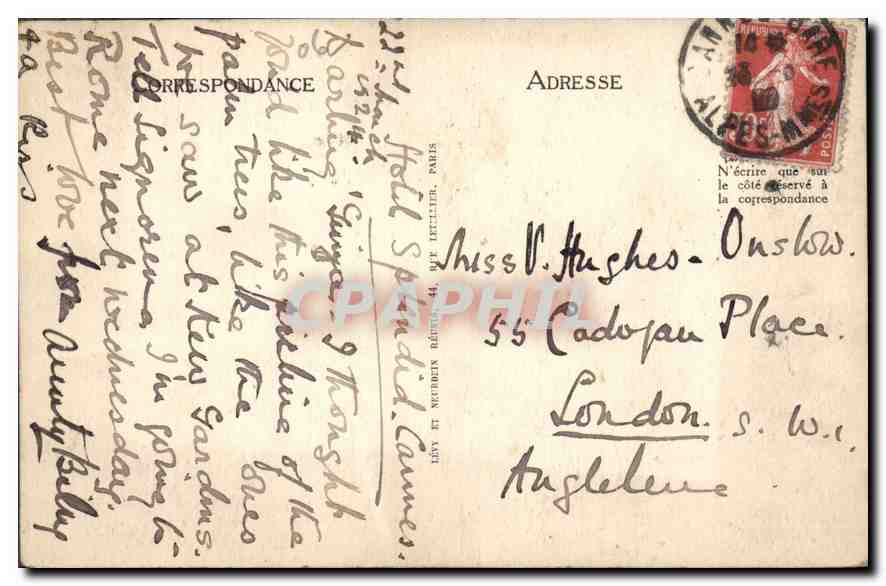 CORRESPONDANCE
ADRESSE
Hotel Splendid. Cannes.
22nd March
1924.
Darling I thought
you'd like this picture of the
palm trees, like the ones
we saw at Kew Gardens.
Tell Signorina I'm going to
Rome next wednesday.
Best love from Aunty Billy
& a kiss
LÉVY ET NEURDEIN RÉUNIS, 44, RUE LETELLIER, PARIS
ALPES-MMES
POSTES
N'écrire que sur
le côté réservé à
la correspondance
Miss V. Hughes-Onslow.
55 Cadogan Place
London. S.W.1
Angleterre
CPAPHIL